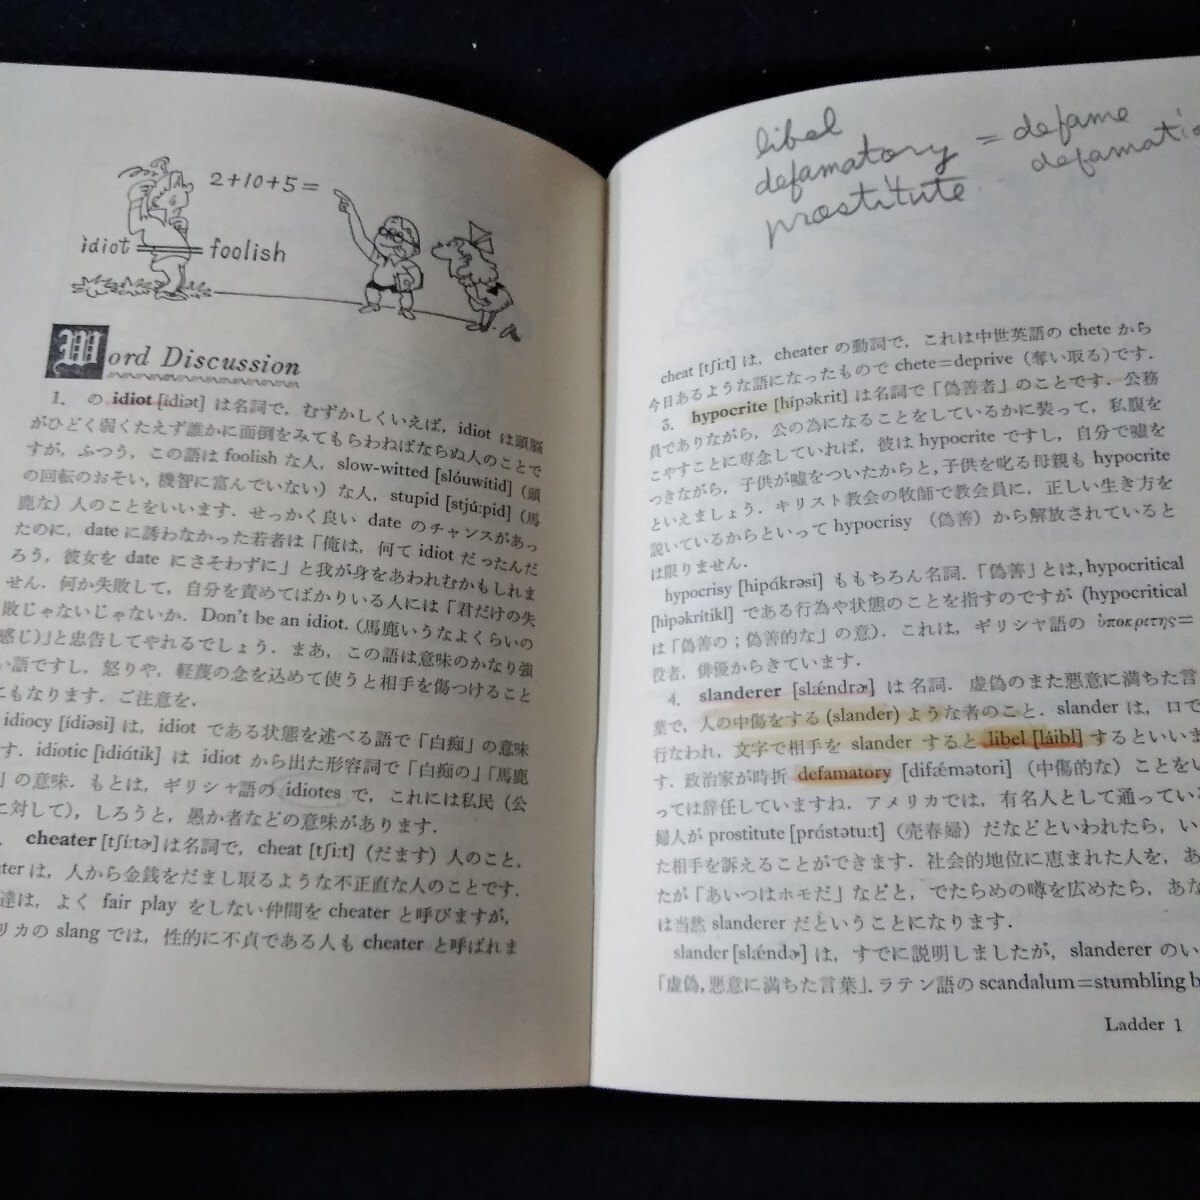 2+10+5=
idiot
foolish
Word Discussion
1. の idiot [ídiət] は名詞で，むずかしくいえば，idiot は頭脳
がひどく弱くたえず誰かに面倒をみてもらわねばならぬ人のことで
すが，ふつう，この語は foolish な人，slow-witted [slóuwítid]（頭
の回転のおそい，機智に富んでいない）な人，stupid [stjú:pid]（馬
鹿な）人のことをいいます．せっかく良い date のチャンスがあっ
たのに，date に誘わなかった若者は「俺は，何て idiot だったんだ
ろう，彼女を date にさそわずに」と我が身をあわれむかもしれま
せん．何か失敗して，自分を責めてばかりいる人には「君だけの失
敗じゃないじゃないか．Don't be an idiot. (馬鹿いうなよくらいの
感じ)」と忠告してやれるでしょう．まあ，この語は意味のかなり強
い語ですし，怒りや，軽蔑の念を込めて使うと相手を傷つけること
にもなります．ご注意を．
idiocy [ídiəsi] は，idiot である状態を述べる語で「白痴」の意味
す．idiotic [ìdiátik] は idiot から出た形容詞で「白痴の」「馬鹿
」の意味．もとは，ギリシャ語の idiotes で，これには私民（公
に対して），しろうと，愚か者などの意味があります．
. cheater [tʃí:tɚ] は名詞で，cheat [tʃí:t]（だます）人のこと．
ter は，人から金銭をだまし取るような不正直な人のことです．
達は，よく fair play をしない仲間を cheater と呼びますが，
リカの slang では，性的に不貞である人も cheater と呼ばれま
libel
defamatory = defame
defamati
prostitute
cheat [tʃi:t] は，cheater の動詞で，これは中世英語の chete から
今日あるような語になったもので chete=deprive（奪い取る）です．
3. hypocrite [hípəkrit] は名詞で「偽善者」のことです．公務
員でありながら，公の為になることをしているかに装って，私腹を
こやすことに専念していれば，彼は hypocrite ですし，自分で嘘を
つきながら，子供が嘘をついたからと，子供を叱る母親も hypocrite
といえましょう．キリスト教会の牧師で教会員に，正しい生き方を
説いているからといって hypocrisy （偽善）から解放されていると
は限りません．
hypocrisy [hipákrəsi] ももちろん名詞．「偽善」とは，hypocritical
[hìpəkrítikl] である行為や状態のことを指すのですが (hypocritical
は「偽善の；偽善的な」の意)．これは，ギリシャ語の ὑποκριτης=
役者，俳優からきています．
4. slanderer [slǽndrɚ] は名詞．虚偽のまた悪意に満ちた言
葉で，人の中傷をする (slander) ような者のこと．slander は，口で
行なわれ，文字で相手を slander すると libel [láibl] するといいま
す．政治家が時折 defamatory [difǽmətori]（中傷的な）ことをい
っては辞任していますね．アメリカでは，有名人として通ってい
婦人が prostitute [prástətu:t]（売春婦）だなどといわれたら，い
た相手を訴えることができます．社会的地位に恵まれた人を，あ
たが「あいつはホモだ」などと，でたらめの噂を広めたら，あな
は当然 slanderer だということになります．
slander [slǽndɚ] は，すでに説明しましたが，slanderer のい
「虚偽，悪意に満ちた言葉」．ラテン語の scandalum=stumbling b
Ladder 1